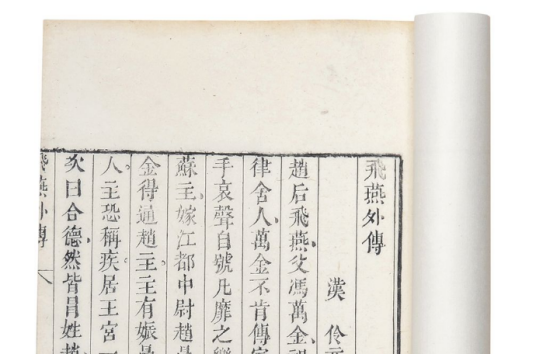 飛燕外傳
漢 伶
趙后飛燕父馮萬金
律舍人萬金不肯傳
手哀聲自號凡靡之
蘇主嫁江都中尉趙
金得通趙主主有娠
人主恐稱疾居王宮
次曰合德然皆冒姓趙
飛燕外傳